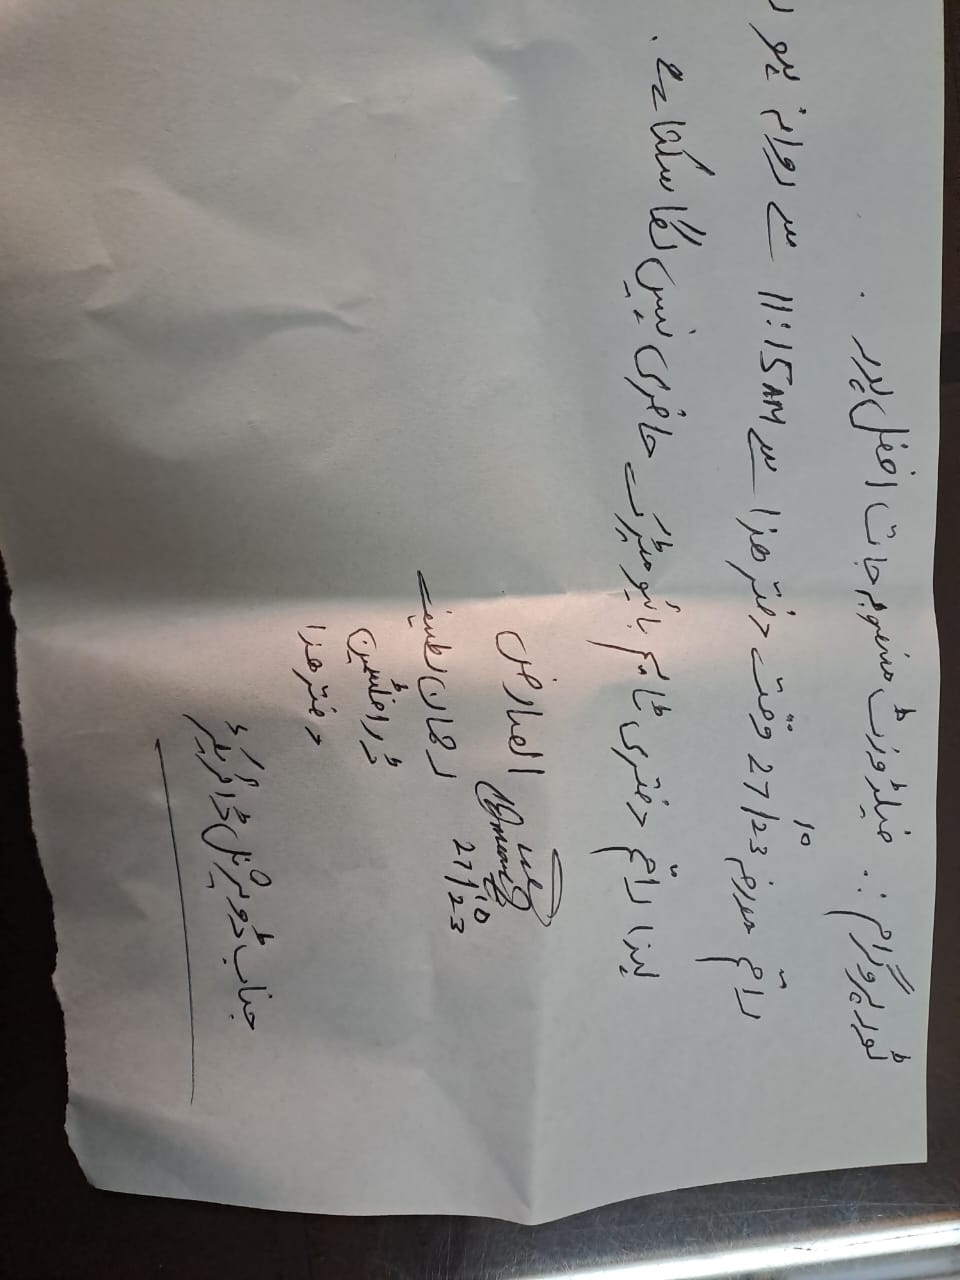 ٹور پروگرام :. فیلڈ وزٹ منصوبہ جات افضل پور .
راقم مورخہ 27/10/23 وقت دفتر ھذا سے 11:15AM سے روانہ ہو ر
لہذا راقم دفتری ٹایم بائیو میٹرک حاضری نہیں لگا سکتا ہے .
العارض
27/10/23
رحمان لطیف
ڈرافٹسمین
دفتر ھذا
جناب ڈویژنل ڈائریکٹر